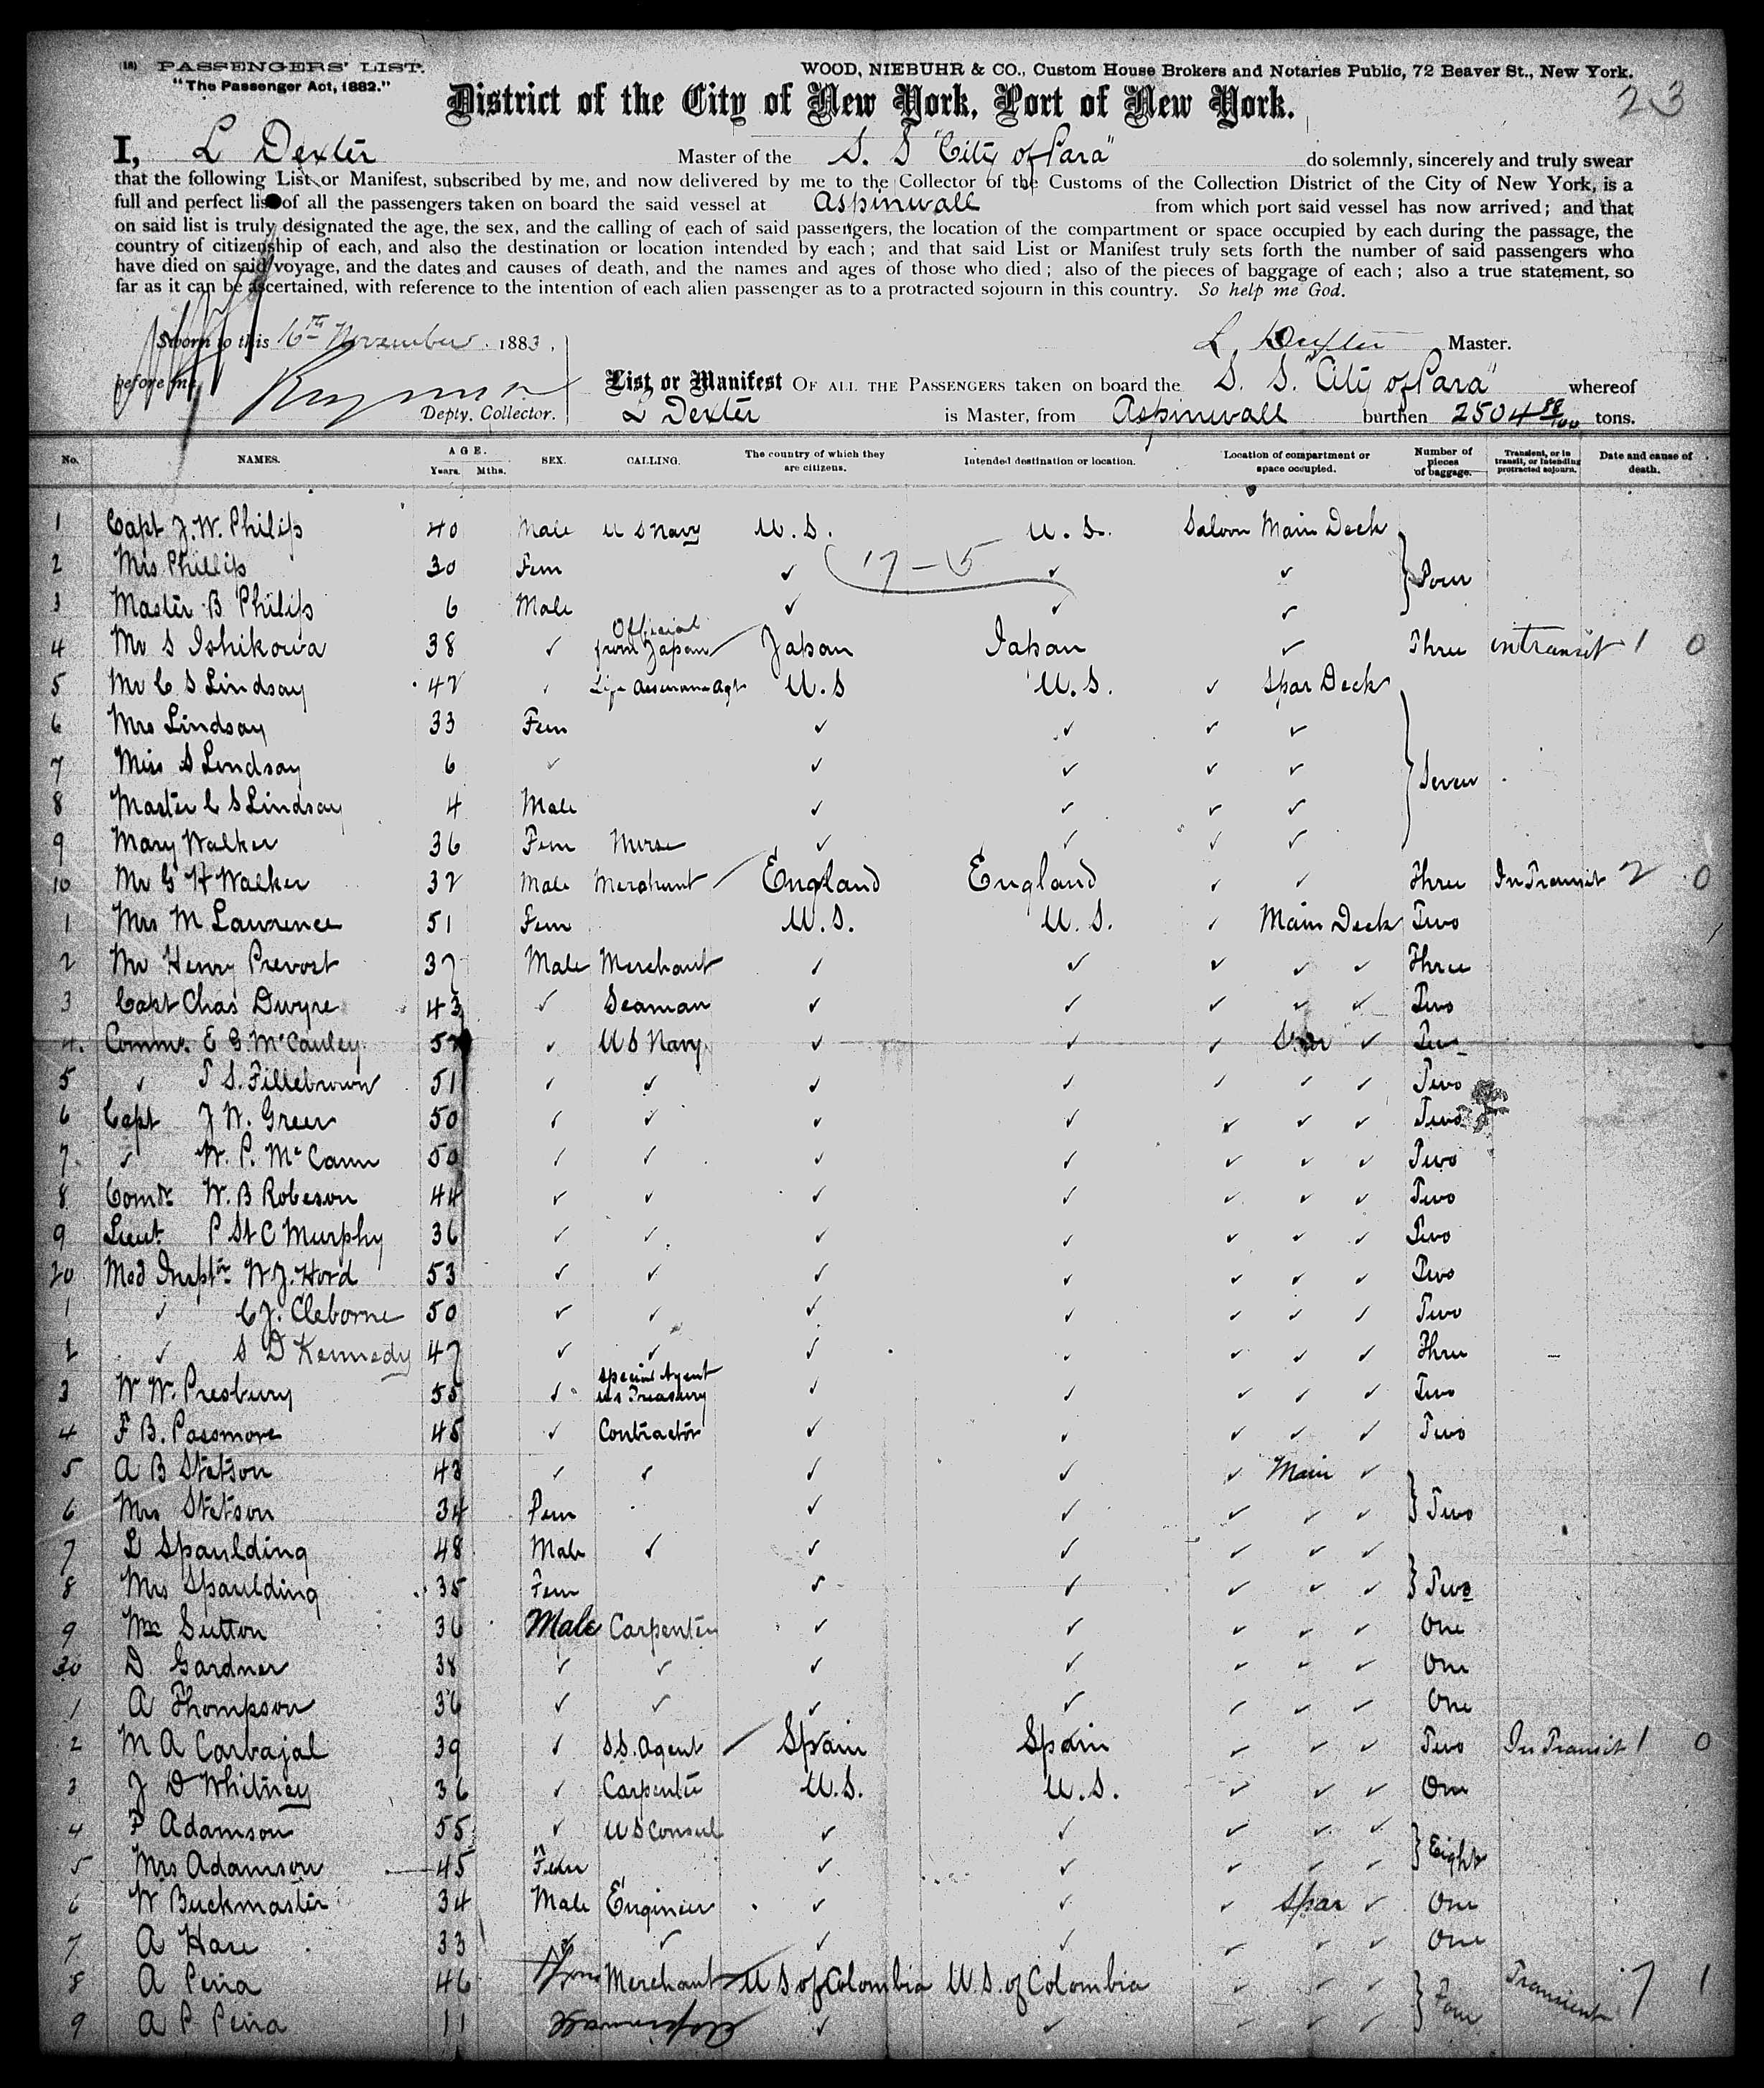 (18) PASSENGERS' LIST. WOOD, NIEBUHR & CO., Custom House Brokers and Notaries Public, 72 Beaver St., New York.
"The Passenger Act, 1882."
23
District of the City of New York, Port of New York.
I, L Dexter Master of the S. S "City of Para" do solemnly, sincerely and truly swear
that the following List or Manifest, subscribed by me, and now delivered by me to the Collector of the Customs of the Collection District of the City of New York, is a
full and perfect list of all the passengers taken on board the said vessel at Aspinwall from which port said vessel has now arrived; and that
on said list is truly designated the age, the sex, and the calling of each of said passengers, the location of the compartment or space occupied by each during the passage, the
country of citizenship of each, and also the destination or location intended by each; and that said List or Manifest truly sets forth the number of said passengers who
have died on said voyage, and the dates and causes of death, and the names and ages of those who died; also of the pieces of baggage of each; also a true statement, so
far as it can be ascertained, with reference to the intention of each alien passenger as to a protracted sojourn in this country. So help me God.
Sworn to this 6th November 1883, L Dexter Master.
before me,
Depty. Collector.
List or Manifest OF ALL THE PASSENGERS taken on board the S. S. "City of Para" whereof
L Dexter is Master, from Aspinwall burthen 2504 88/100 tons.
No. NAMES. AGE. Years. Mths. SEX. CALLING. The country of which they are citizens. Intended destination or location. Location of compartment or space occupied. Number of pieces of baggage. Transient, or in transit, or intending protracted sojourn. Date and cause of death.
1 Capt J. W. Philip 40 Male U S Navy U. S. U. S. Saloon Main Deck
2 Mrs Phillip 30 Fem ✓ 17-15 ✓ ✓ Four
3 Master B Philip 6 Male ✓ ✓ ✓
4 Mr S Ishikowa 38 ✓ Official from Japan Japan Japan ✓ Three intransit 1 0
5 Mr C S Lindsay 42 ✓ Life Assurance Agt U. S U. S. ✓ Spar Deck
6 Mrs Lindsay 33 Fem ✓ ✓ ✓ ✓
7 Miss S Lindsay 6 ✓ ✓ ✓ ✓ ✓ Seven
8 Master C S Lindsay 4 Male ✓ ✓ ✓ ✓
9 Mary Walker 36 Fem Nurse ✓ ✓ ✓ ✓
10 Mr G H Walker 32 Male Merchant England England ✓ ✓ Three In Transit 2 0
1 Mrs M Lawrence 51 Fem U. S. U. S. ✓ Main Deck Two
2 Mr Henry Prevost 37 Male Merchant ✓ ✓ ✓ ✓ ✓ Three
3 Capt Chas Dwyre 43 ✓ Seaman ✓ ✓ ✓ ✓ ✓ Two
4 Comm. E G. McCauley ✓ U S Navy ✓ ✓ ✓ Spar ✓ Two
5 ✓ T S. Fillebrown 51 ✓ ✓ ✓ ✓ ✓ ✓ ✓ Two
6 Capt J W. Greer 50 ✓ ✓ ✓ ✓ ✓ ✓ ✓ Two
7 ✓ W. P. McCann 50 ✓ ✓ ✓ ✓ ✓ ✓ ✓ Two
8 Comdr W. B Robeson 44 ✓ ✓ ✓ ✓ ✓ ✓ ✓ Two
9 Lieut. P St C Murphy 36 ✓ ✓ ✓ ✓ ✓ ✓ ✓ Two
20 Med Inspr W J. Hord 53 ✓ ✓ ✓ ✓ ✓ ✓ ✓ Two
1 ✓ C J. Cleborne 50 ✓ ✓ ✓ ✓ ✓ ✓ ✓ Two
2 ✓ S D Kennedy 47 ✓ ✓ ✓ ✓ ✓ ✓ ✓ Three
3 W W. Presbury 55 ✓ Special Agent U S Treasury ✓ ✓ ✓ ✓ ✓ Two
4 F B. Passmore 45 ✓ Contractor ✓ ✓ ✓ ✓ ✓ Two
5 A B Stetson 43 ✓ ✓ ✓ ✓ ✓ Main ✓
6 Mrs Stetson 34 Fem ✓ ✓ ✓ ✓ ✓ Two
7 L Spaulding 48 Male ✓ ✓ ✓ ✓ ✓ ✓
8 Mrs Spaulding 35 Fem ✓ ✓ ✓ ✓ ✓ Two
9 Wm Sutton 36 Male Carpenter ✓ ✓ ✓ ✓ ✓ One
30 D Gardner 38 ✓ ✓ ✓ ✓ ✓ ✓ ✓ One
1 A Thompson 36 ✓ ✓ ✓ ✓ ✓ ✓ ✓ One
2 M A Carbajal 39 ✓ S.S. Agent Spain Spain ✓ ✓ ✓ Two In Transit 1 0
3 J D Whitney 36 ✓ Carpenter U. S. U. S. ✓ ✓ ✓ One
4 Adamson 55 ✓ U S Consul ✓ ✓ ✓ ✓ ✓
5 Mrs Adamson 45 Fem ✓ ✓ ✓ ✓ ✓ Eight
6 W Buckmaster 34 Male Engineer ✓ ✓ ✓ Spar ✓ One
7 A Hare 33 ✓ ✓ ✓ ✓ ✓ ✓ ✓ One
8 A Pena 46 Merchant U S of Colombia U. S. of Colombia ✓ ✓ ✓ Transient 7 1
9 A P Pena 11 ✓ ✓ ✓ ✓ ✓ Four